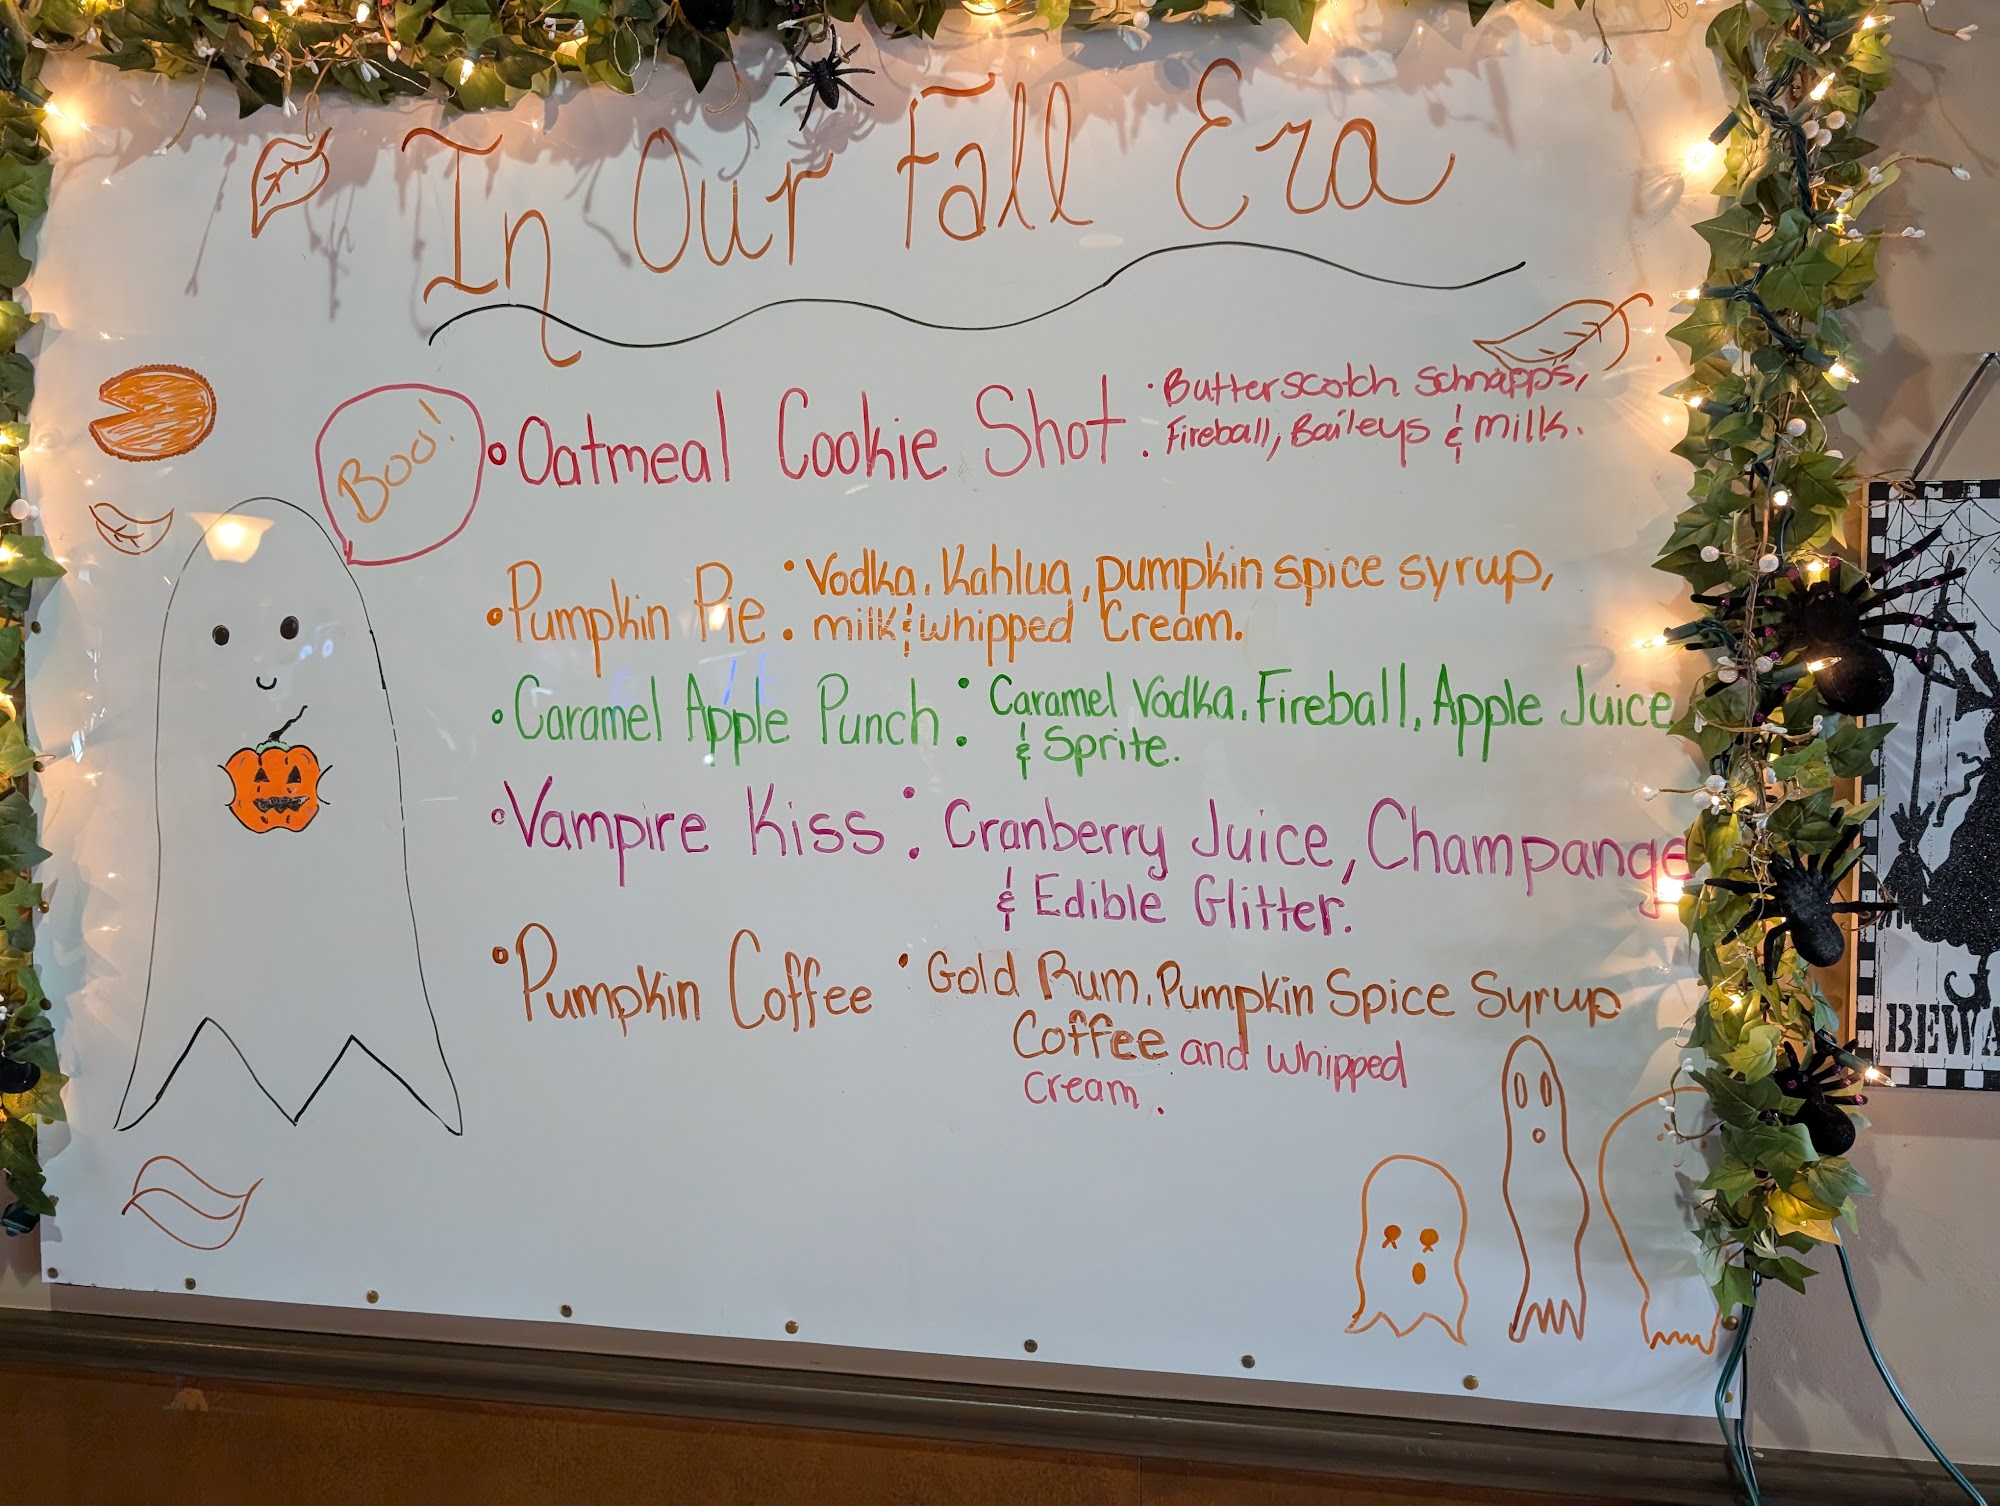 In Our Fall Era
Boo!
• Oatmeal Cookie Shot : Butterscotch Schnapps,
Fireball, Baileys & milk.
• Pumpkin Pie : Vodka, Kahlua, pumpkin spice syrup,
milk & whipped Cream.
• Caramel Apple Punch : Caramel Vodka, Fireball, Apple Juice
& Sprite.
• Vampire Kiss : Cranberry Juice, Champange
& Edible Glitter.
• Pumpkin Coffee • Gold Rum, Pumpkin Spice Syrup
Coffee and whipped
cream.
BEWA